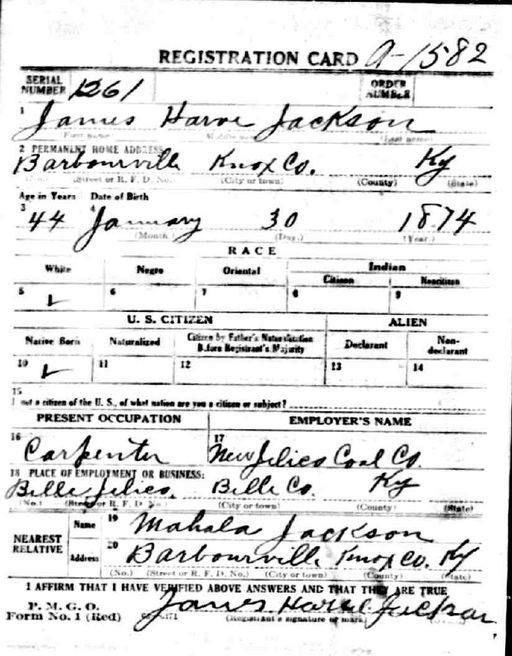 REGISTRATION CARD A-1582
SERIAL NUMBER 1261 ORDER NUMBER
1 James Harve Jackson
First name Middle name Last name
2 PERMANENT HOME ADDRESS
Barbourville Knox Co. Ky
(No.) (Street or R. F. D. No.) (City or town) (County) (State)
Age in Years Date of Birth
3 44 4 January 30 1874
(Month) (Day.) (Year.)
RACE
White Negro Oriental Indian
Citizen Noncitizen
5 6 7 8 9
U. S. CITIZEN ALIEN
Native Born Naturalized Citizen by Father's Naturalization Before Registrant's Majority Declarant Non-declarant
10 11 12 13 14
15
If not a citizen of the U. S., of what nation are you a citizen or subject?
PRESENT OCCUPATION EMPLOYER'S NAME
16 Carpenter 17 New Jelico Coal Co.
18 PLACE OF EMPLOYMENT OR BUSINESS:
Jelico, Co. Ky
(No.) (Street or R. F. D. No.) (City or town) (County) (State)
NEAREST RELATIVE Name 19 Mahala Jackson
Address 20 Barbourville Knox Co. Ky
(No.) (Street or R. F. D. No.) (City or town) (County) (State)
I AFFIRM THAT I HAVE VERIFIED ABOVE ANSWERS AND THAT THEY ARE TRUE
P. M. G. O.
Form No. 1 (Red) James Harve Jackson
(Registrant's signature or mark)